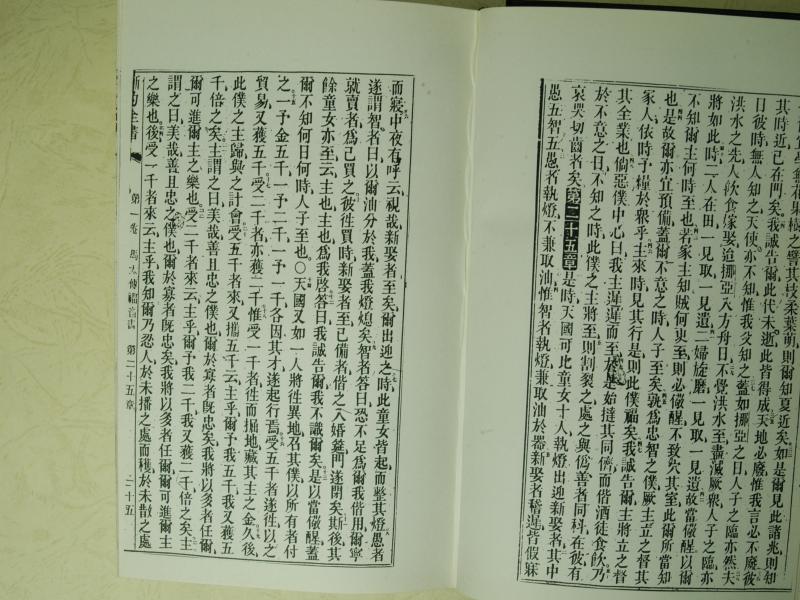 其時近已在門矣我誠告爾此代未逝此皆得成天地必廢惟我言必不廢彼
日彼時無人知之天使亦不知惟我父知之蓋如挪亞之日人子之臨亦然夫
洪水之先人飲食嫁娶迨挪亞入方舟日不覺洪水至盡滅厥衆人子之臨亦
將如此時二人在田一見取一見遺二婦旋磨一見取一見遺故當儆醒以爾
不知爾主何時至也若家主知賊何更至則必儆醒不致穴其室此爾所當知
也是故爾亦宜預備蓋爾不意之時人子至矣孰為忠智之僕厥主立之督其
家人依時予糧於衆乎主來時見其行是則此僕福矣我誠告爾主將立之督
其全業也倘惡僕中心曰我主遲遲而至於是始撻其同儕而偕酒徒食飲乃
於不意之日不知之時此僕之主將至則割裂之處之與偽善者同科在彼有
哀哭切齒者矣第二十五章是時天國可比童女十人執燈出迎新娶者其中
愚五智五愚者執燈不兼取油惟智者執燈兼取油於器新娶者稽遲皆假寐
而寢中夜有呼云視哉新娶者至矣爾出迎之時此童女皆起而整其燈愚者
遂謂智者曰以爾油分於我蓋我燈熄矣智者答曰恐不足為爾我偕用爾寧
就賣者為己買之彼往買時新娶者至已備者偕之入婚筵門遂閉矣斯後其
餘童女亦至云主也主也為我啟答曰我誠告爾我不識爾矣是以當儆醒蓋
爾不知何日何時人子至也○天國又如一人將徃異地名其僕以所有者付
之一予金五千一予二千一予一千各因其才遂起行焉受五千者遂徃以之
貿易又獲五千受二千者亦獲二千惟受一千者徃而掘地藏其主之金久後
此僕之主歸與之計會受五千者來又攜五千云主乎爾予我五千我又獲五
千倍之矣主謂之曰美哉善且忠之僕也爾於寡者旣忠矣我將以多者任爾
爾可進爾主之樂也受二千者來云主乎爾予我二千我又獲二千倍之矣主
謂之曰美哉善且忠之僕也爾於寡者旣忠矣我將以多者任爾爾可進爾主
之樂也後受一千者來云主乎我知爾乃忍人於未播之處而穫於未散之處
新約全書 第一卷 馬太傳福音書 第二十五章 二十五